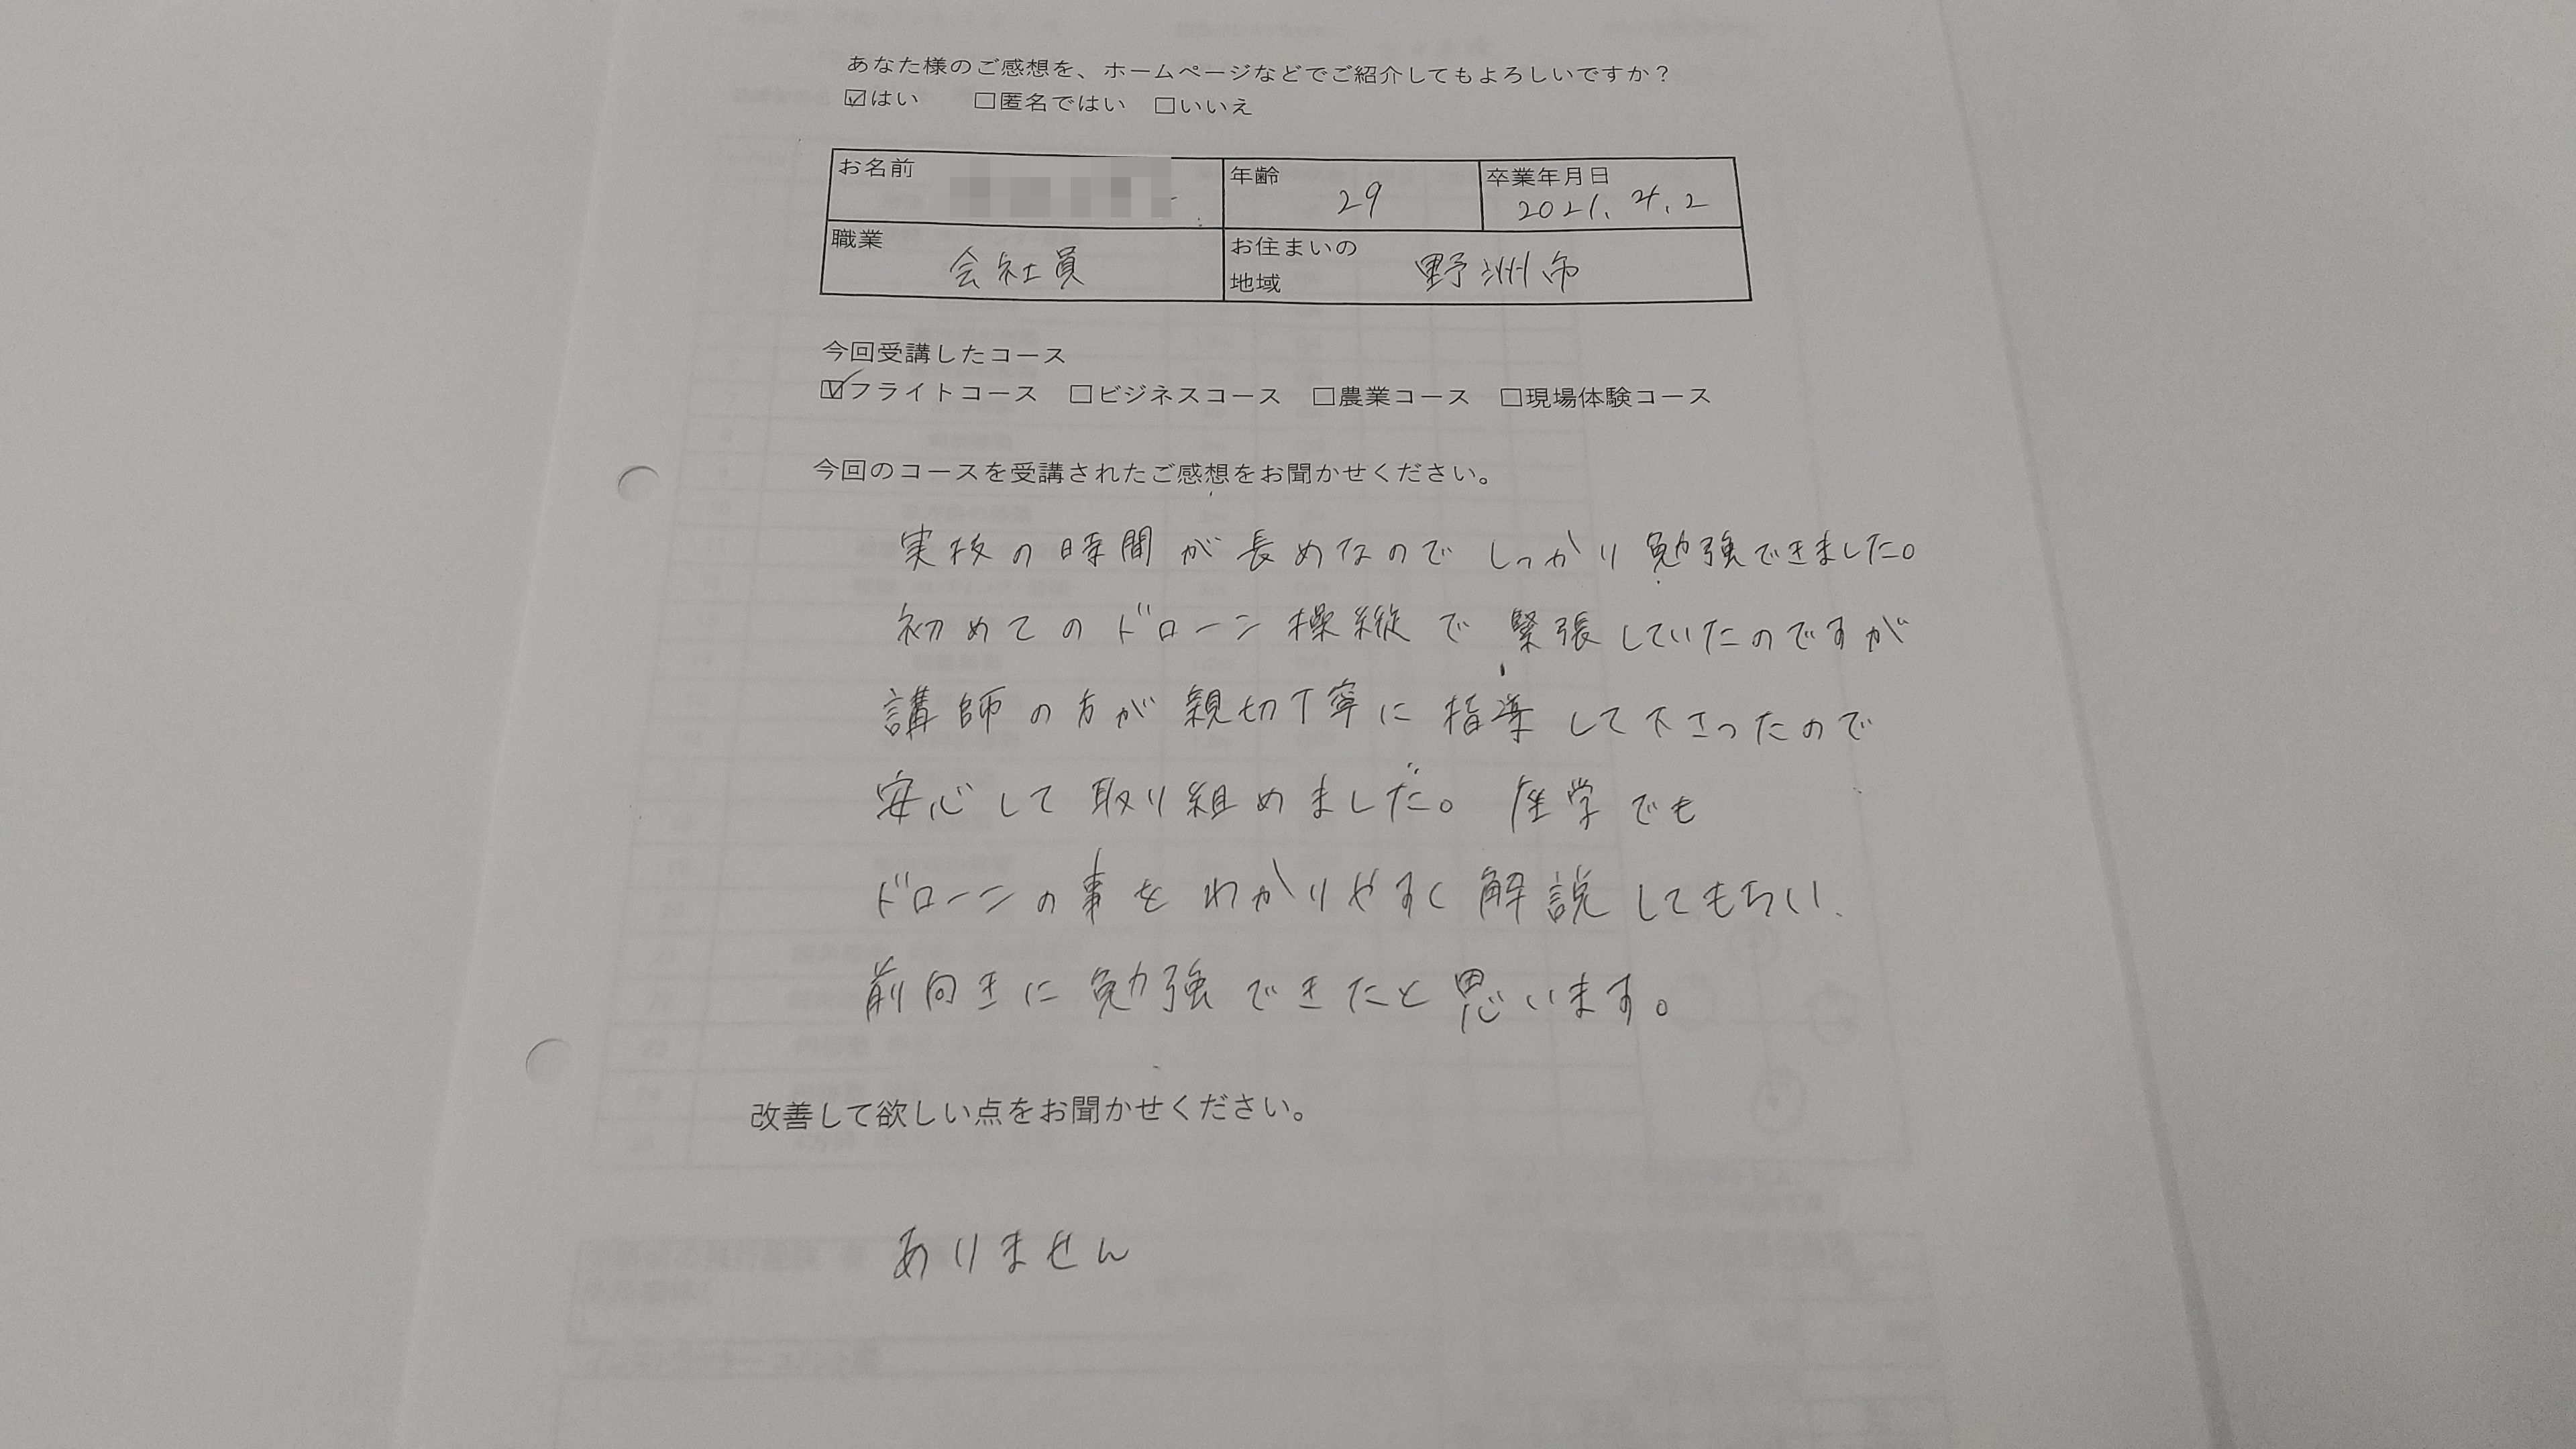 あなた様のご感想を、ホームページなどでご紹介してもよろしいですか？
☑はい □匿名ではい □いいえ
お名前
年齢 29
卒業年月日 2021.4.2
職業 会社員
お住まいの地域 野洲市
今回受講したコース
☑フライトコース □ビジネスコース □農業コース □現場体験コース
今回のコースを受講されたご感想をお聞かせください。
実技の時間が長めなのでしっかり勉強できました。
初めてのドローン操縦で緊張していたのですが
講師の方が親切丁寧に指導して下さったので
安心して取り組めました。座学でも
ドローンの事をわかりやすく解説してもらい、
前向きに勉強できたと思います。
改善して欲しい点をお聞かせください。
ありません